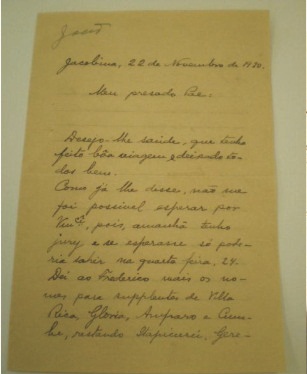 Jacobina, 22 de Novembro de 1920.
Meu presado Pae.
Desejo-lhe saude, que tenha
feito bôa viagem e deixando to-
dos bem.
Como já lhe disse, não me
foi possivel esperar por
pois, amanhã tenho
jury, e se esperasse só pode-
ria sahir na quarta feira, 24.
Dei ao Frederico mais os no-
mes para supplentes de Villa
Rica, Gloria, Amparo e Cum-
be, restando Itapicurú, Gere-